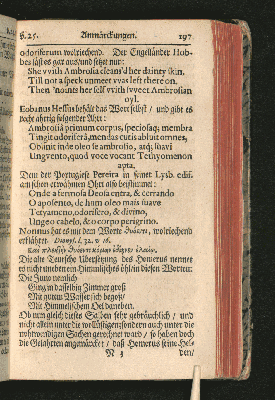 §. 25. Anmärckungen. 197
odoriferum wolriechend. Der Engelländer Hob-
bes läst es gar aus/und setzt nur:
She vvith Ambrosia cleans'd her dainty skin,
Till not a speck unmeet vvas left there on.
Then 'noints her self vvith svveet Ambrosian
oyl.
Eobanus Hessus behält das Wort selbst / und gibt es
Ambrosiâ primum corpus, speciosaq; membra
Tingit odoriferâ, mendas cutis abluit omnes,
Obûnit inde oleo se ambrosio, atq; suavi
Unguento, quod voce vocant Tethyomenon
Dem der Portugiese Pereira in seiner Lysb. edit.
am schon erwähnten Ohrt also beystimmet:
Onde a fermosa Deosa entra, & cerrando
O aposento, de hum oleo mais suave
Tetyamcno, odorifero, & divino,
Unge o cabelo, & o corpo peregrino.
Nonnus hat es mit dem Worte wolriechend
erklähret. Dionys. l. 32. v. 16.
Die alte Teutsche Übersetzung des Homerus nennet
es nicht uneben ein Himmlisches öhl/in diesen Worten:
Die Juno nemlich
Ging in daselbig Zimmer groß
Mit gutem Wasser sich begoß/
Mit Himmelischem Oel daneben.
Ob nun gleich dieses Salben sehr gebräuchlich / und
nicht allein unter die wollüstigen/sondern auch unter die
nohtwendigen Sachen gerechnet ward / so haben doch
die Gelährten angemärcket / daß Homerus seine Hel-
N 3 den/